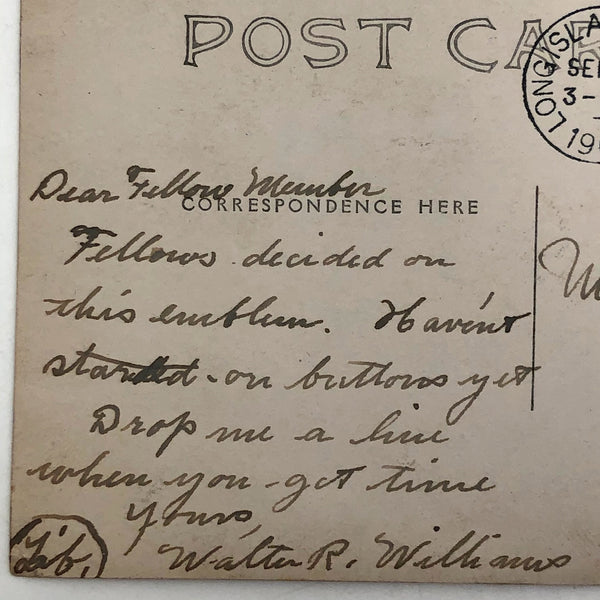 POST CAR
LONG ISLA
SE
3-
19
Dear Fellow Member
CORRESPONDENCE HERE
Fellows decided on
this emblem. Haven't
started on buttons yet
Drop me a line
when you get time
Yours,
Lib, Walter R. Williams
M